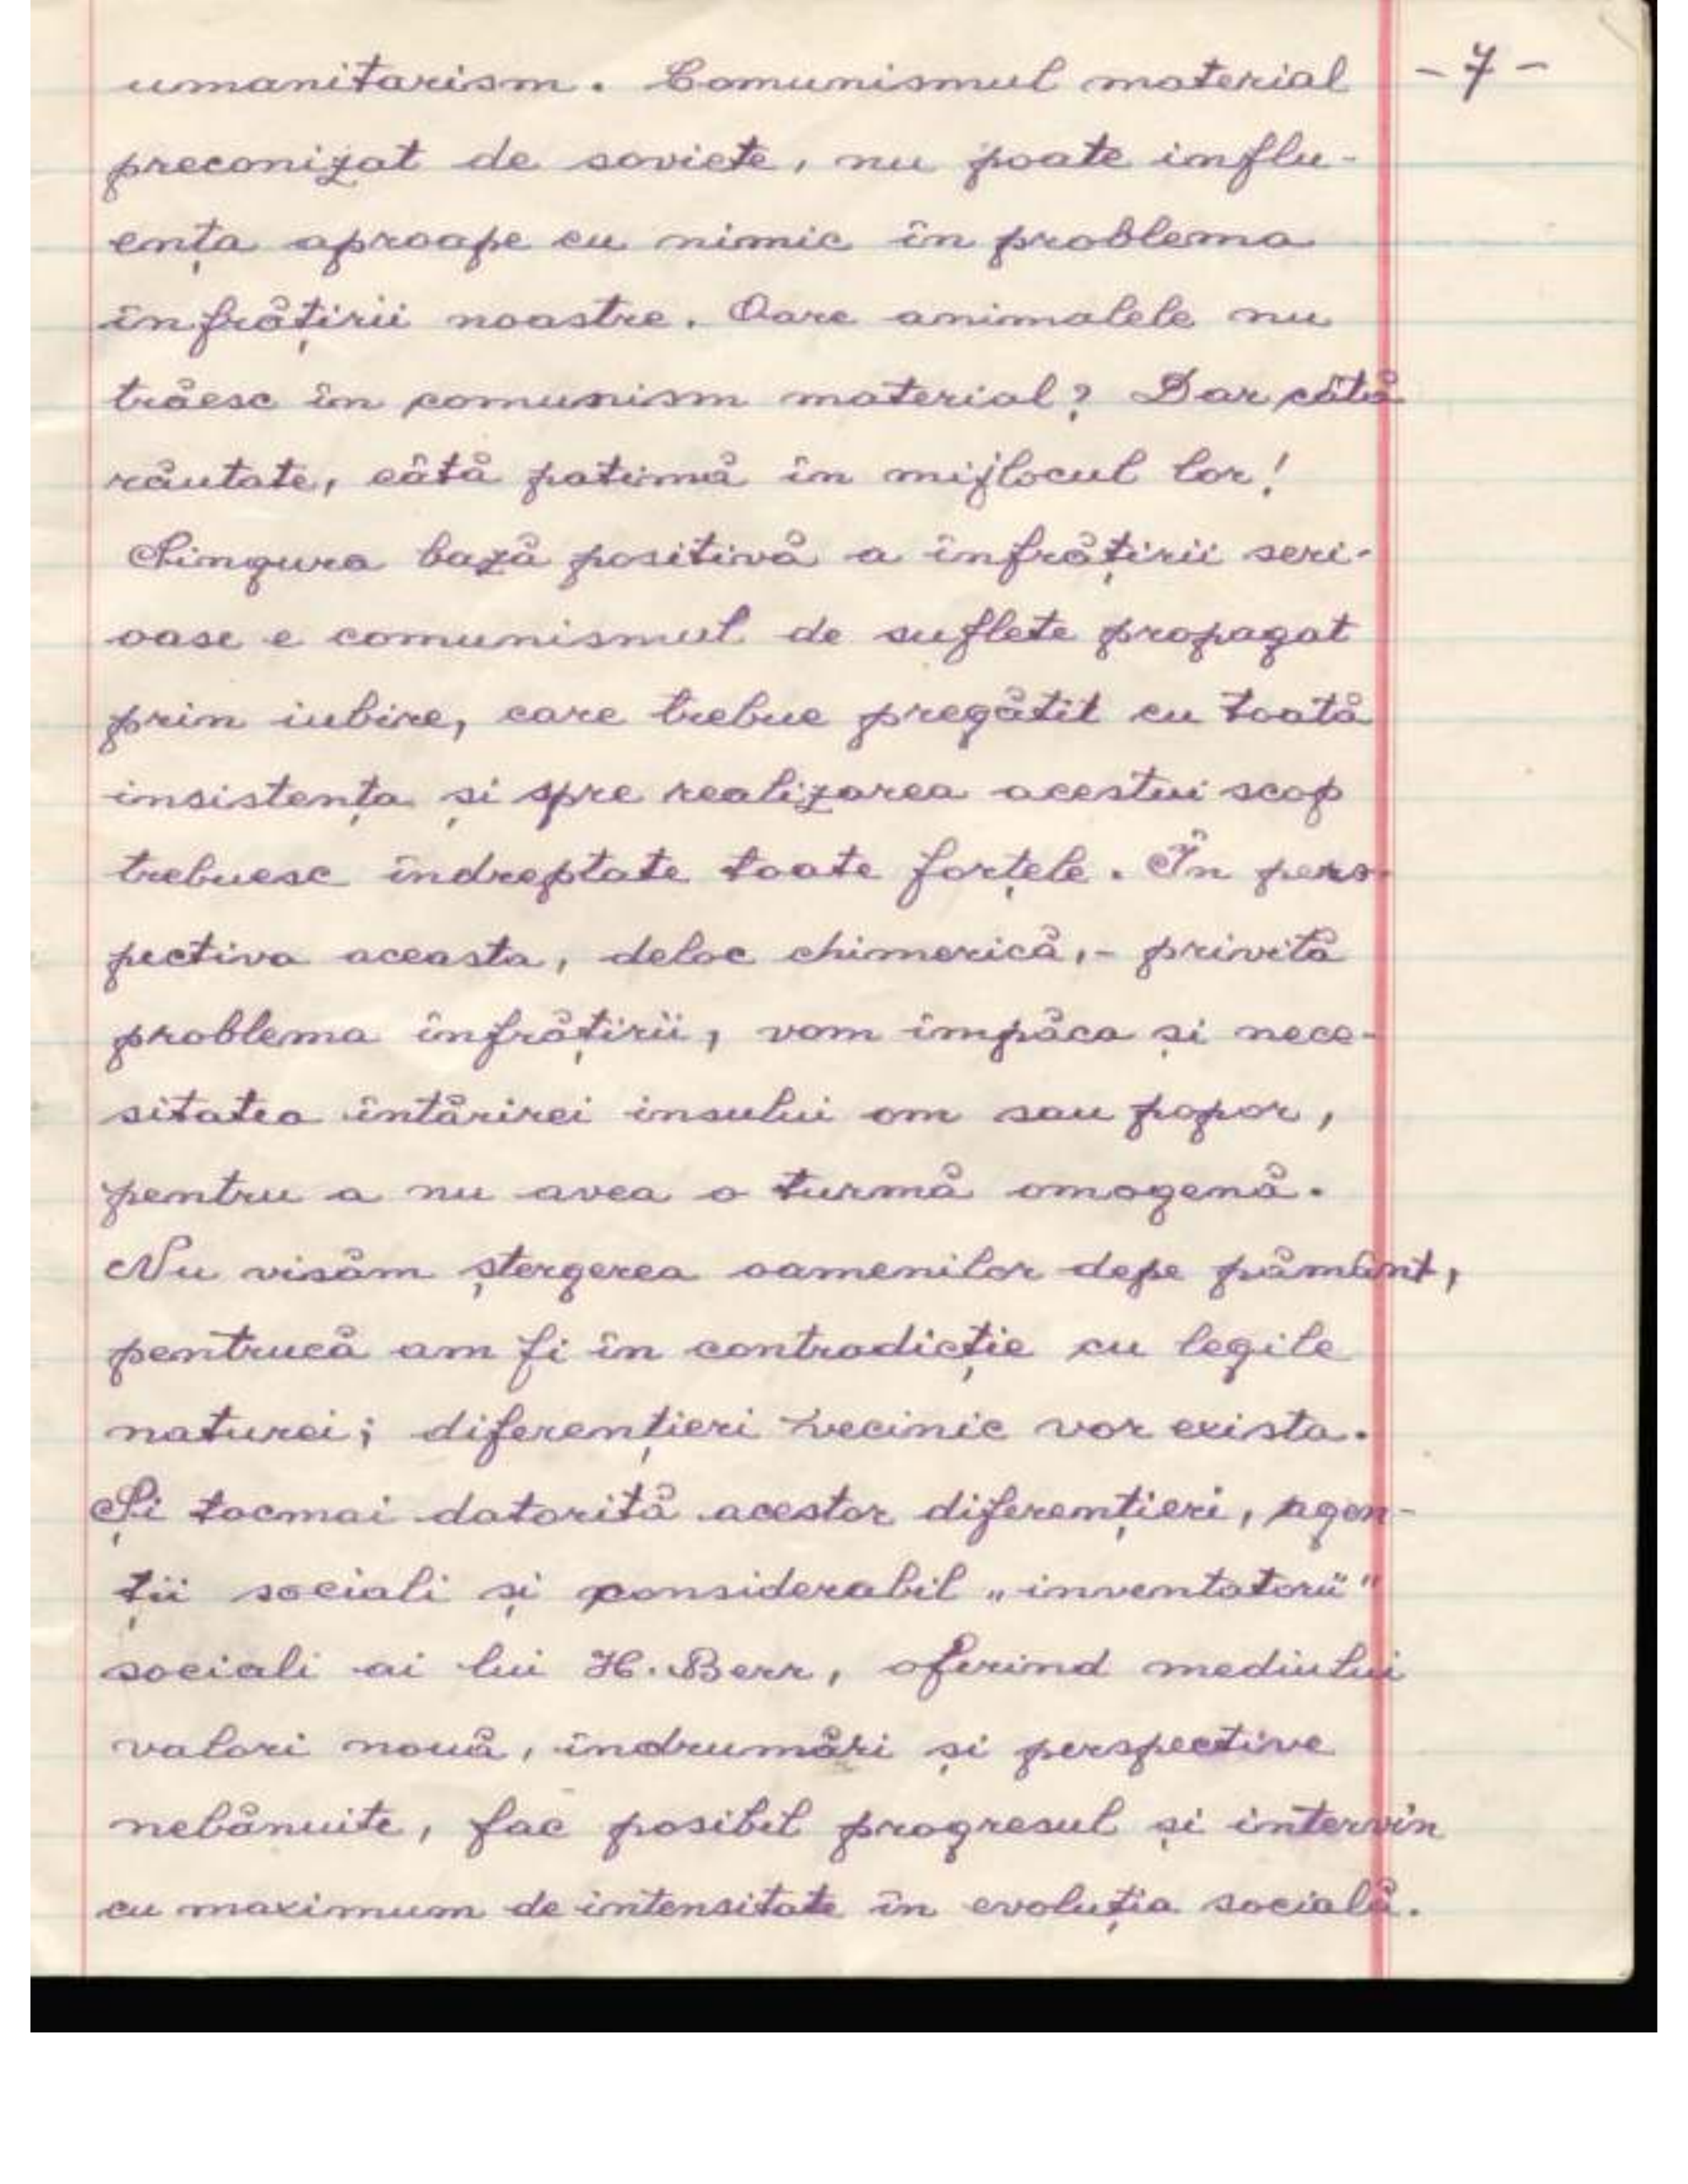 umanitarism. Comunismul material
- 7 -
preconizat de soviete, nu poate influ-
ența aproape cu nimic în problema
înfrățirii noastre. Oare animalele nu
trăesc în comunism material? Dar câtă
răutate, câtă patimă în mijlocul lor!
Singura bază positivă a înfrățirii seri-
oase e comunismul de suflete propagat
prin iubire, care trebue pregătit cu toată
insistența și spre realizarea acestui scop
trebuesc îndreptate toate forțele. În pers-
pectiva aceasta, deloc chimerică,- privită
problema înfrățirii, vom împăca și nece-
sitatea întărirei insului om sau popor,
pentru a nu avea o turmă omogenă.
Nu visăm ștergerea oamenilor depe pământ,
pentrucă am fi în contradicție cu legile
naturei; diferențieri vecinic vor exista.
Și tocmai datorită acestor diferențieri, agen-
ții sociali și considerabil „inventatorii"
sociali ai lui H. Berr, oferind mediului
valori nouă, îndrumări și perspective
nebănuite, fac posibil progresul și intervin
cu maximum de intensitate în evoluția socială.